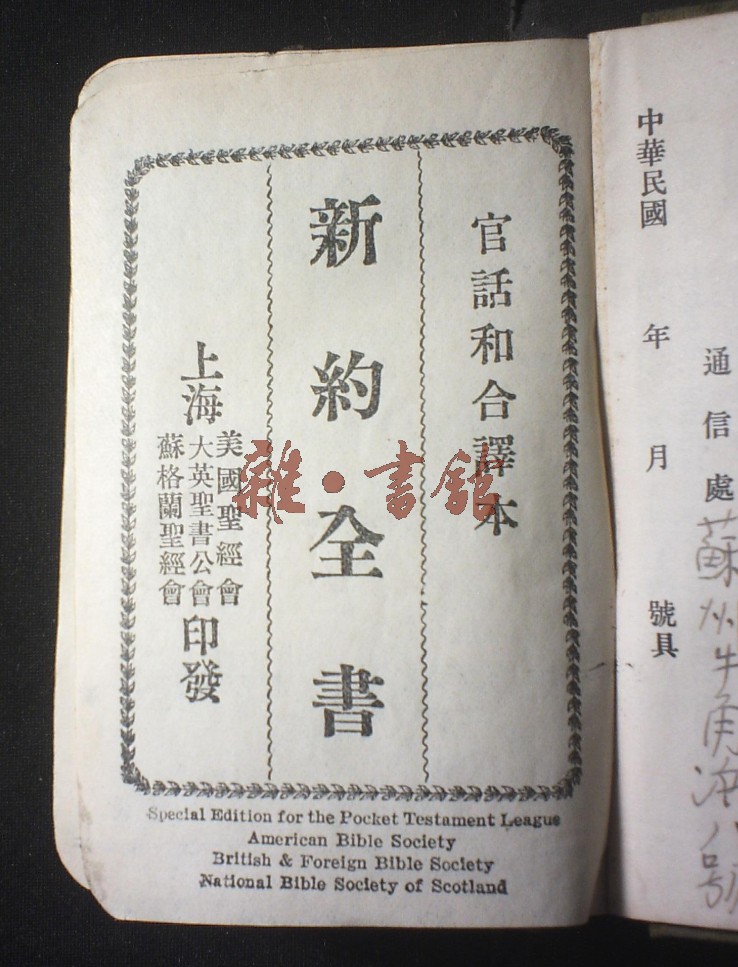 官話和合譯本
新約全書
上海
美國聖經會
大英聖書公會
蘇格蘭聖經會
印發
Special Edition for the Pocket Testament League
American Bible Society
British & Foreign Bible Society
National Bible Society of Scotland
通信處 蘇州牛角浜八號
中華民國 年 月 號具
雜·書館